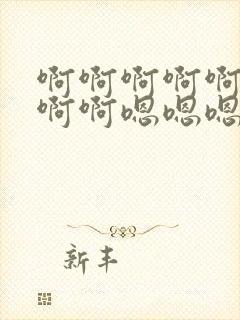 啊啊啊啊啊
啊啊嗯嗯嗯
新丰